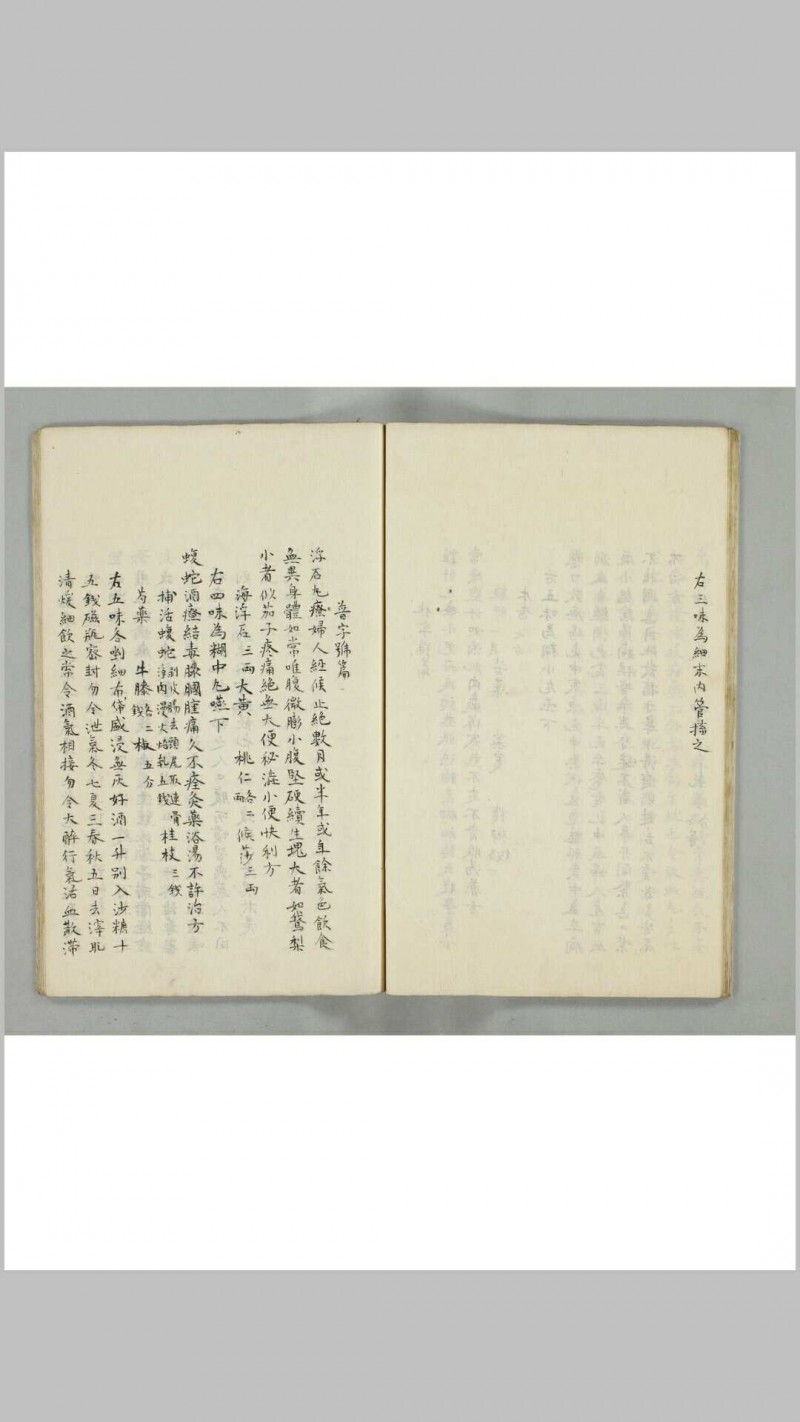 右三味為細末内管搐之
善字號篇
浮石丸療婦人經候止絶數月或半年或年餘氣色飲食
無異身體如常唯腹微膨小腹堅硬續生塊大者如鵞梨
小者似茄子疼痛絶無大便秘澁小便快利方
海浮石三兩大黄 桃仁各二兩候莎三兩
右四味為糊中丸嚥下
蝮蛇酒療結毒臁膕腫痛久不痊灸藥浴湯不許治方
捕活蝮蛇剥皮腸去頭尾取連骨淨肉漫火焙乾五錢桂枝三錢
芍藥 牛膝各二錢椒五分
右五味各剉細布帒盛浸無灰好酒一升別入沙糖十
五錢磁瓶密封勿令泄氣冬七夏三春秋五日去滓
清煖細飲之常令酒氣相接勿令大醉行氣活血散滯